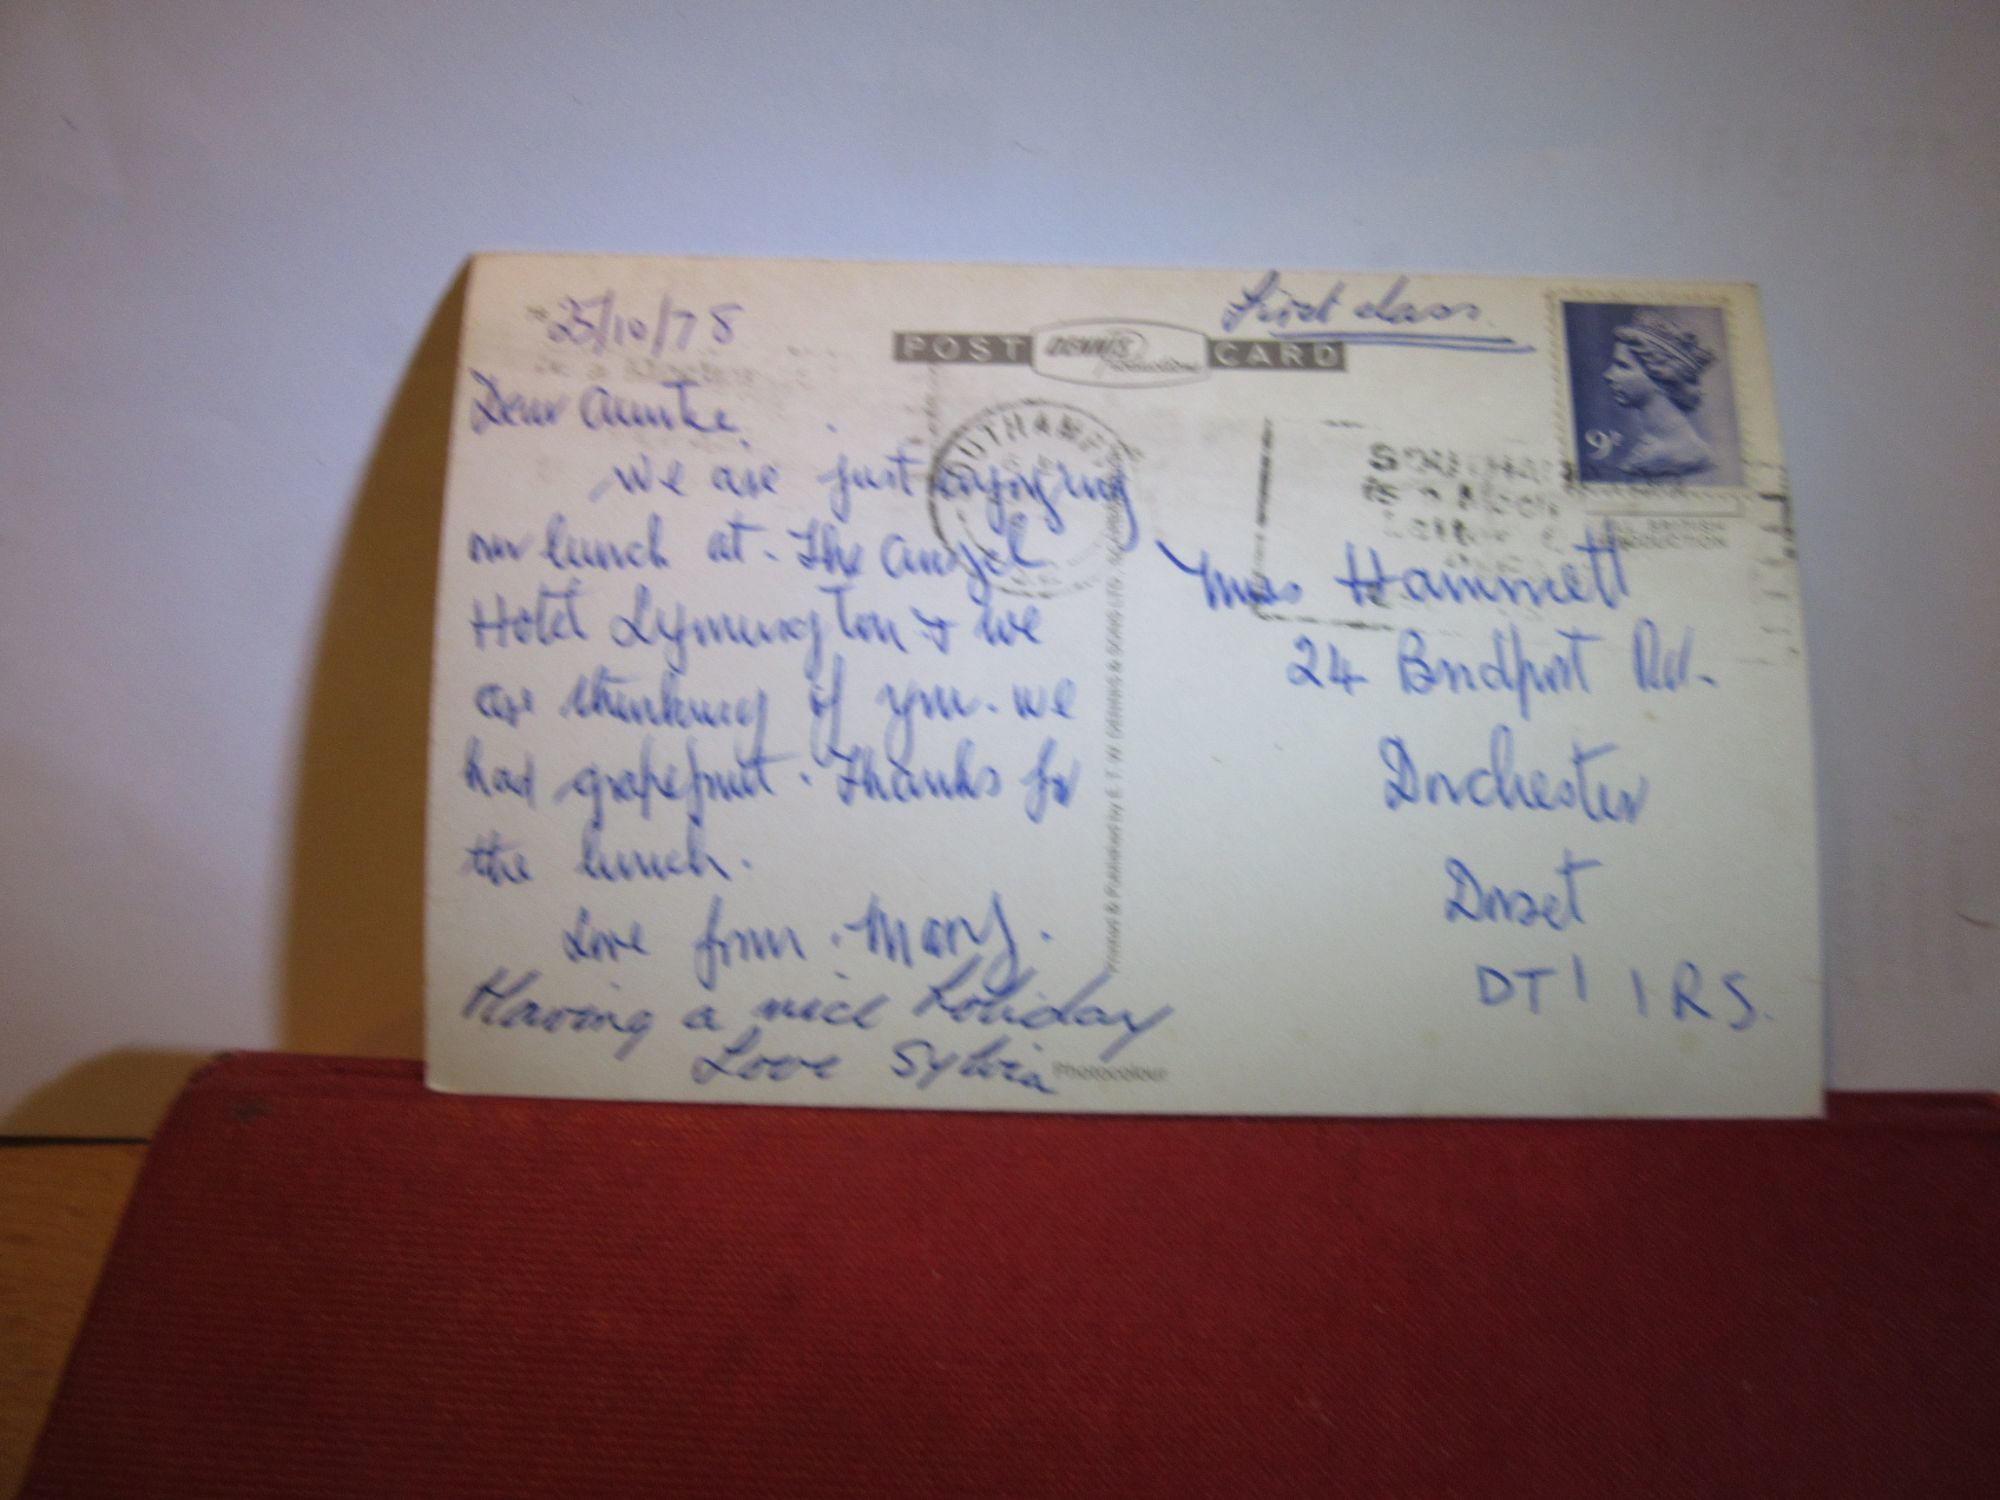 25/10/78
Dear Auntie,
We are just enjoying
our lunch at. The Angel
Hotel Lymington & we
are thinking of you. we
had grapefruit. Thanks for
the lunch.
Love from. Mary.
Having a nice holiday
Love Sylvia
POST Dennis Productions CARD
First class.
SOUTHAMPTON
9P
ALL BRITISH
PRODUCTION
Miss Hammett
24 Bridport Rd.
Dorchester
Dorset
DT1 1RS.
Printed & Published by E. T. W. DENNIS & SONS LTD.,
Photocolour